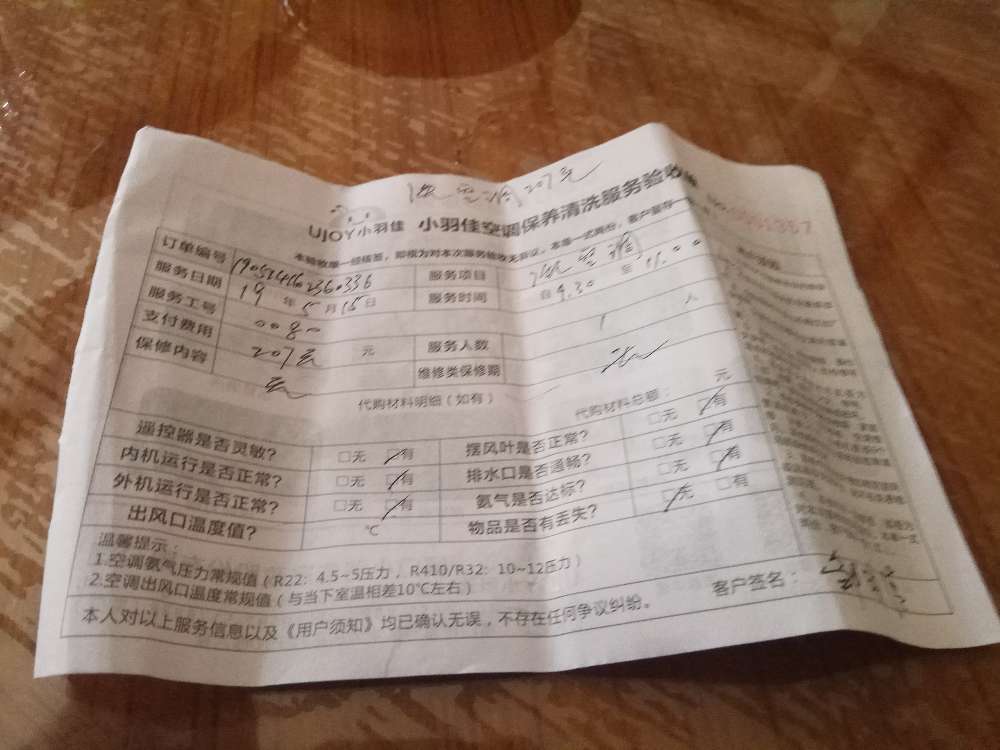 洗空调207元
UJOY小羽佳 小羽佳空调保养清洗服务验收单
本验收单一经核签，即视为对本次服务验收无异议，本单一式两份，客户留存一
订单编号 服务项目 洗空调
服务日期 19年5月15日 服务时间 自9.30至11.00
服务工号 0080 服务人数 1人
支付费用 207元 元 维修类保修期 无
保修内容 无
代购材料明细（如有） 代购材料总额： 元
遥控器是否灵敏？ □无 □有 摆风叶是否正常？ □无 □有
内机运行是否正常？ □无 □有 排水口是否通畅？ □无 □有
外机运行是否正常？ □无 □有 氨气是否达标？ □无 □有
出风口温度值？ ℃ 物品是否有丢失？ □无 □有
温馨提示：
1.空调氨气压力常规值（R22：4.5~5压力，R410/R32：10~12压力）
2.空调出风口温度常规值（与当下室温相差10℃左右）
本人对以上服务信息以及《用户须知》均已确认无误，不存在任何争议纠纷。 客户签名：